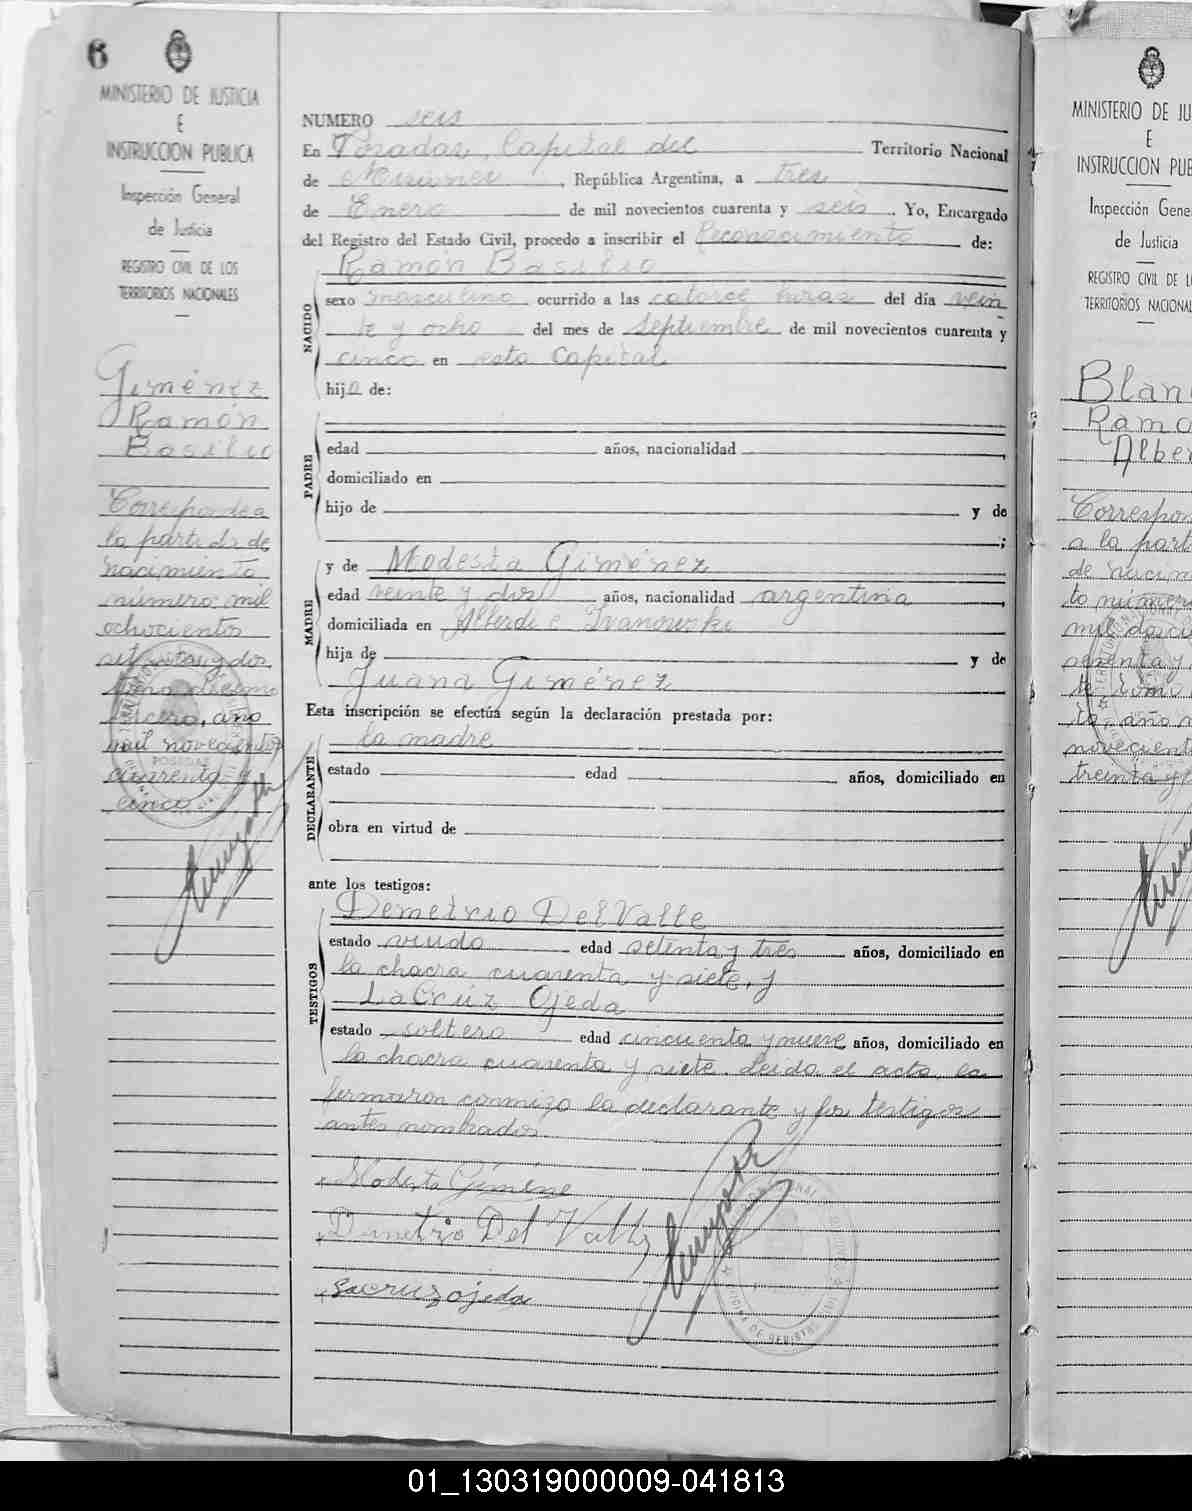 6
MINISTERIO DE JUSTICIA
E
INSTRUCCION PUBLICA
Inspección General
de Justicia
REGISTRO CIVIL DE LOS
TERRITORIOS NACIONALES
Giménez
Ramón
Basilio
Corresponde a
la partida de
nacimiento
número mil
ochocientos
setenta y dos
tomo décimo
tercero, año
mil novecientos
cuarenta y
cinco
NUMERO seis
En Posadas, Capital del Territorio Nacional
de Misiones, República Argentina, a tres
de Enero de mil novecientos cuarenta y seis. Yo, Encargado
del Registro del Estado Civil, procedo a inscribir el Reconocimiento de:
NACIDO
Ramón Basilio
sexo masculino ocurrido a las catorce horas del día vein
te y ocho del mes de septiembre de mil novecientos cuarenta y
cinco en esta Capital
hijo de:
PADRE
edad años, nacionalidad
domiciliado en
hijo de y de
;
MADRE
y de Modesta Giménez
edad veinte y dos años, nacionalidad argentina
domiciliada en Alberdi e Ivanowski
hija de y de
Juana Giménez
Esta inscripción se efectúa según la declaración prestada por:
DECLARANTE
la madre
estado edad años, domiciliado en
obra en virtud de
ante los testigos:
TESTIGOS
Demetrio Del Valle
estado viudo edad setenta y tres años, domiciliado en
la chacra cuarenta y siete, y
La Cruz Ojeda
estado soltero edad cincuenta y nueve años, domiciliado en
la chacra cuarenta y siete. Leída el acta, la
firmaron conmigo la declarante y los testigos
antes nombrados.
Modesta Giméne
Demetrio Del Valle
Lacruz ojeda
MINISTERIO DE JU
E
INSTRUCCION PUB
Inspección Gene
de Justicia
REGISTRO CIVIL DE L
TERRITORIOS NACIONAL
Blan
Ramo
Alber
Correspon
a la part
de nacim
to númer
novecient
treinta y
01_130319000009-041813